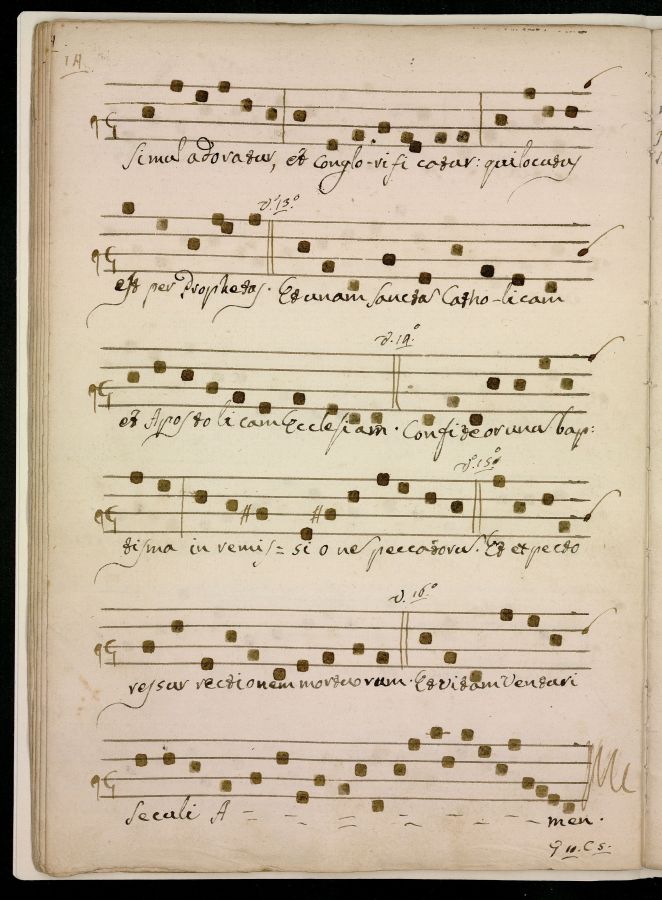 14
Simul adoratur, et Conglo-rifi catur: qui locutus
v.º 13.º
est per Prophetas. Et unam Sanctam Catho-licam
v. 14.º
et Apostolicam Ecclesiam. Confiteor unum bap:
v.º 15.º
tisma in remis= si o nes peccatorum. Et expecto
v. 16.º
ressur rectionem mortuorum. Et Vitam Venturi
Seculi A - - = = - - - - men.